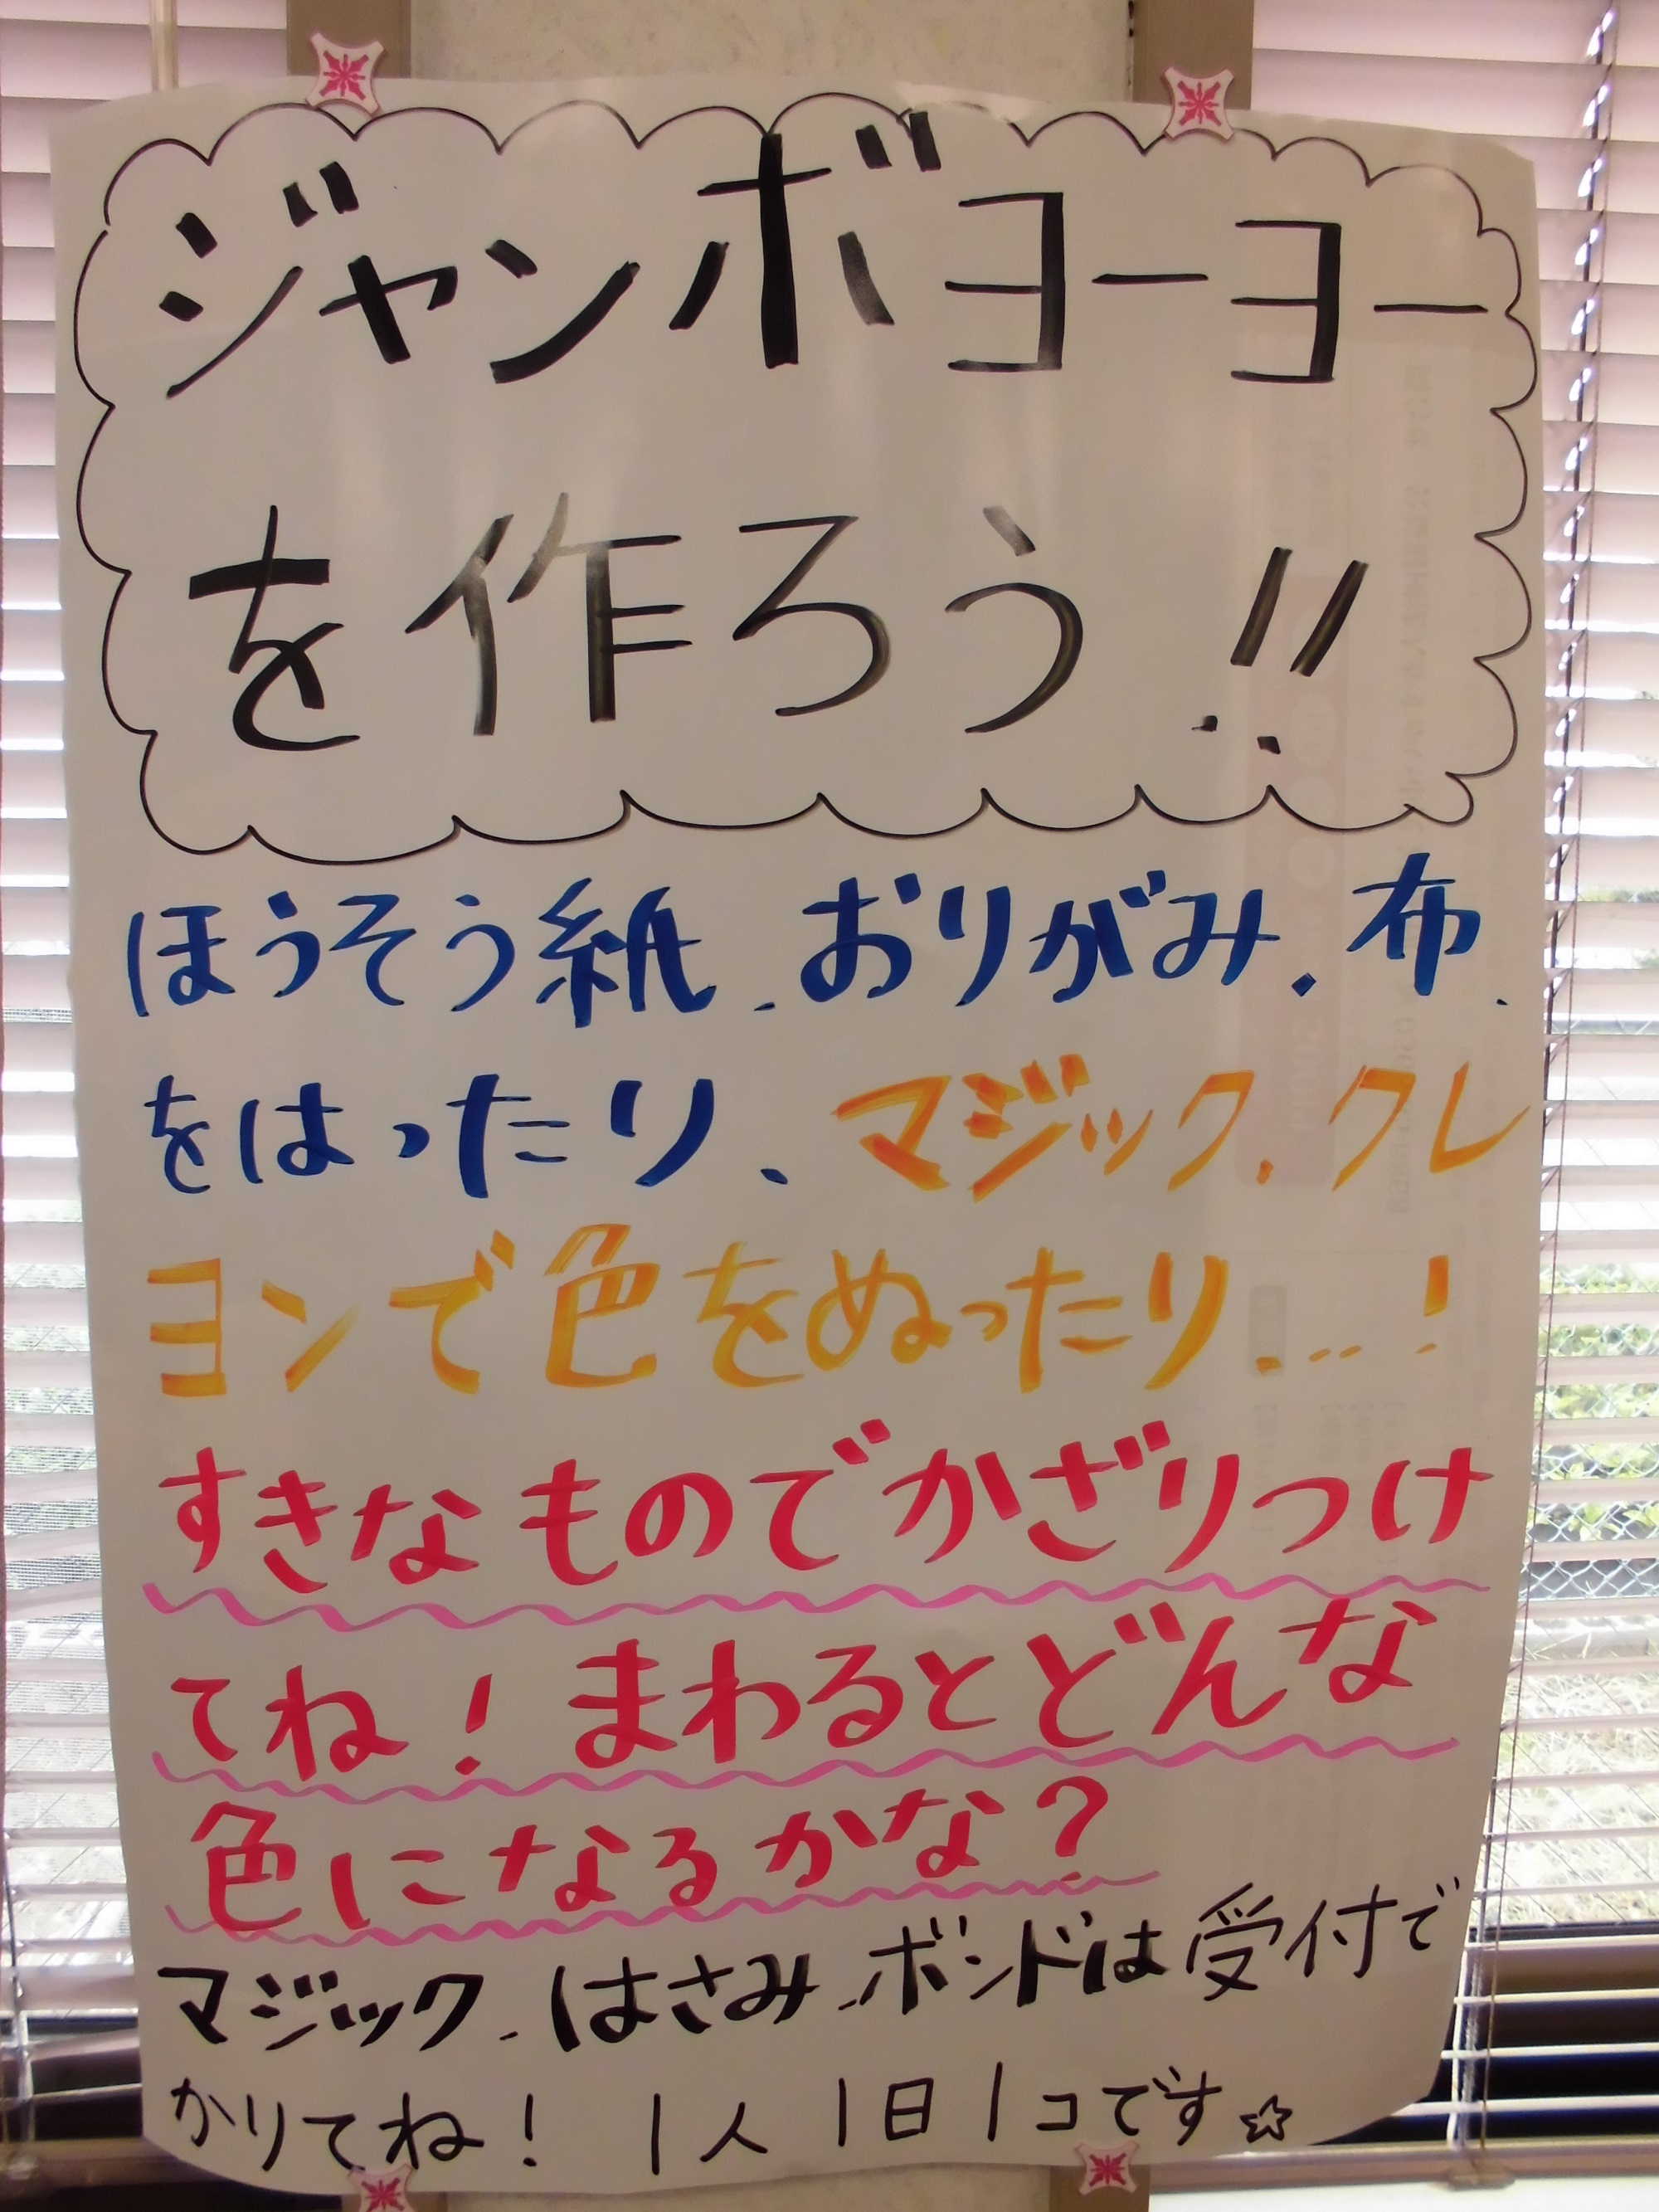 ジャンボヨーヨー
を作ろう!!
ほうそう紙、おりがみ、布、
をはったり、マジック、クレ
ヨンで色をぬったり...!
すきなものでかざりつけ
てね!まわるとどんな
色になるかな?
マジック、はさみ、ボンドは受付で
かりてね! 1人1日1コです☆